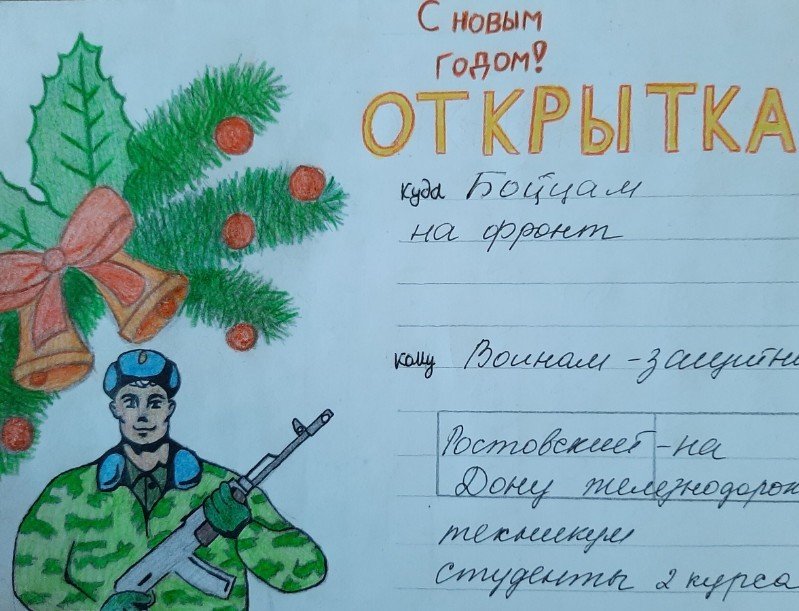 С новым
годом!
ОТКРЫТКА
куда Бойцам
на фронт
кому Воинам - защитни
Ростовский -на
Дону железнодорож
техникум
студенты 2 курса